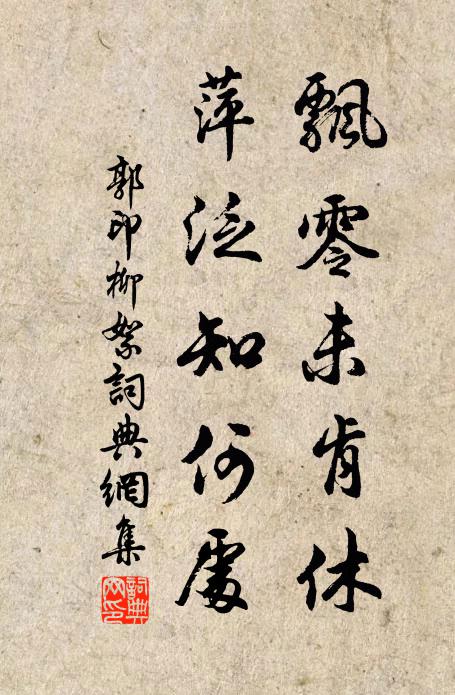 飄零未肯休
萍泛知何處
郭印柳絮詞典網集
詞典網印